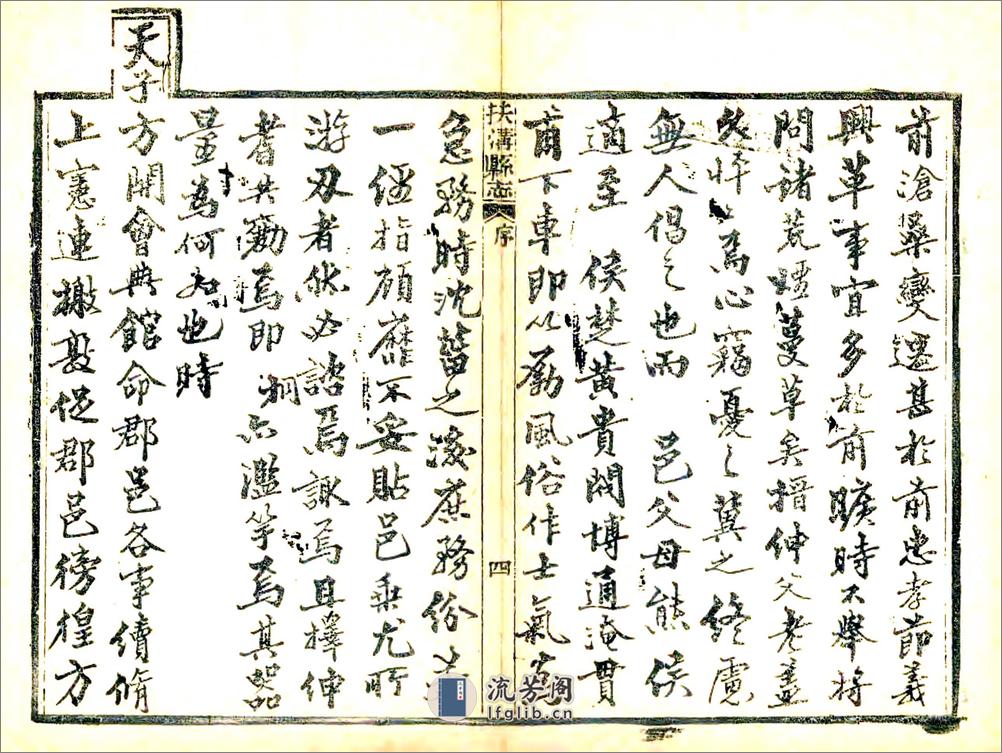 前滄桑變遷甚於前忠孝節義
興革事宜多於前曠時不舉將
問諸荒煙蔓草矣搢紳父老蓋
焉心竊憂之冀之終慮
無人倡之也而 邑父母熊侯
適至 侯楚黃貴閥博通淹貫
甫下車即以勵風俗作士氣為
扶溝縣志 序 四
急務時沈菑之後庶務份
一經指顧靡不妥貼邑乘尤所
游刃者然必諮焉諏焉且擇紳
耆共勷焉即 亦濫竽焉其器
量為何如也時
天子
方開會典館命郡邑各事續脩
上憲連檄敦促郡邑徬徨方
流芳阁
lfglib.cn